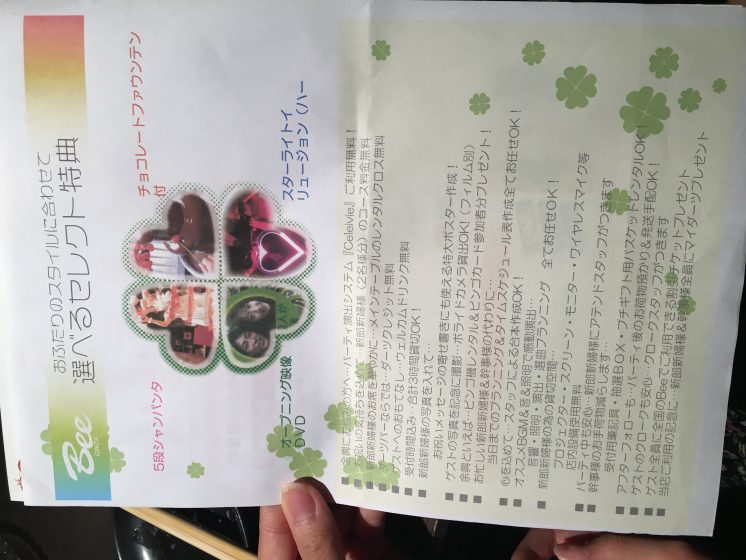 Bee
おふたりのスタイルに合わせて
選べるセレクト特典
5段シャンパンタ
チョコレートファウンテン
付
オープニング映像
DVD
スターライトイ
リュージョン（ハー
■余興にお困りの方へ…パーティ演出システム『Celelvie』ご利用無料！
■お祝いの気持ちを込めて…新郎新婦様（2名様分）のコース料金無料
■新郎新婦様のお席を華やかに…メインテーブルのレンタルクロス無料
■ダーツバーならでは…ダーツクレジット無料
■ゲストへのおもてなし…ウェルカムドリンク無料
■受付時間込み…合計3時間貸切OK！
■新郎新婦様の写真を入れて…
お祝いメッセージの寄せ書きにも使える特大ポスター作成！
■ゲストの写真を記念に撮影…ポライドカメラ貸出OK！（フィルム別）
■余興といえば…ビンゴ機レンタル＆ビンゴカード参加者分プレゼント！
■お忙しい新郎新婦様＆幹事様の代わりに…
当日までのプランニング＆タイムスケジュール表作成全てお任せOK！
■心を込めて…スタッフによる台本作成OK！
■オススメBGM＆音＆照明で感動演出…
音響・照明・演出・選曲プランニング 全てお任せOK！
■新郎新婦様の為の貸切空間…
プロジェクター・スクリーン・モニター・ワイヤレスマイク等
店内設備使用無料
■パーティ中も安心…新郎新婦様にアテンドスタッフがつきます
■幹事様のお手荷物減らします…
受付用筆記具・抽選BOX・プチギフト用バスケットレンタルOK！
■アフターフォローも…パーティ後のお荷物預かり＆発送手配OK！
■ゲストのクロークも安心…クロークスタッフがつきます
■ゲスト全員に全国のBeeでご利用できる割引チケットプレゼント
■当店ご利用の記念に…新郎新婦様＆幹事様全員にマイダーツプレゼント